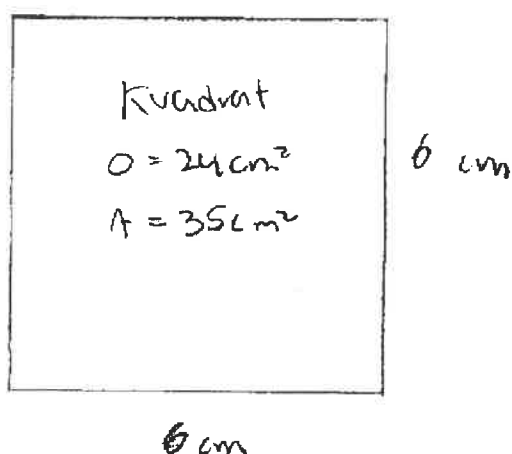 Kvadrat
O = 24 cm²
A = 35 cm²
6 cm
6 cm